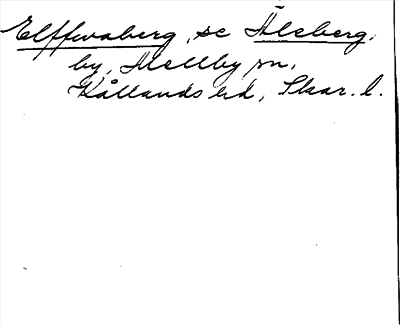 Elffwaberg, se Älsberg,
by, Mellby sn,
Kållands hd, Skar. l.